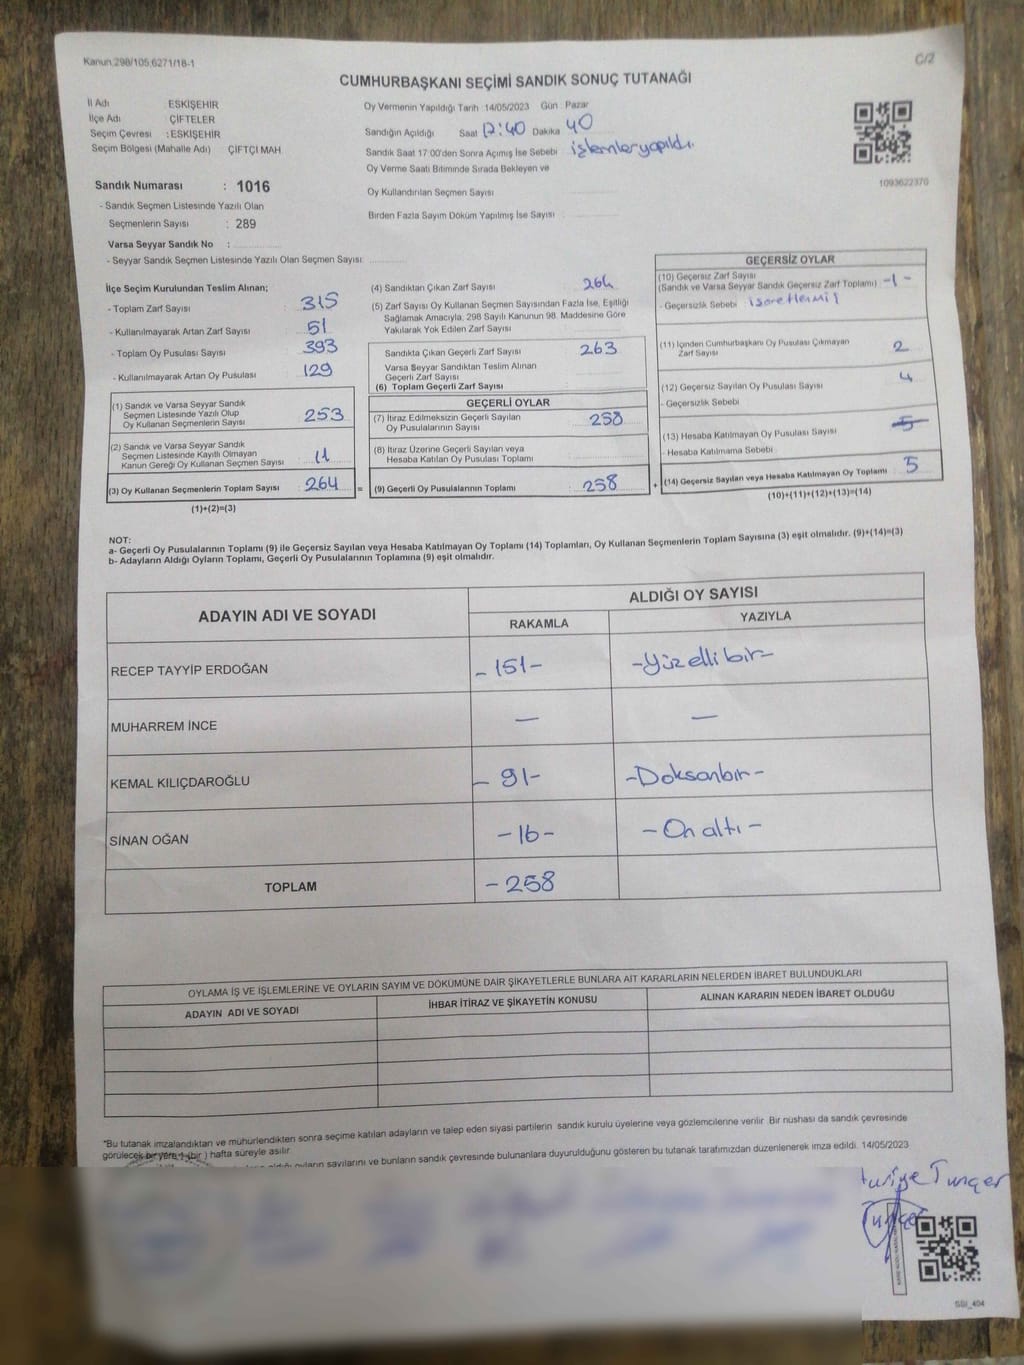 Kanun 298/105,6271/18-1
C/2
CUMHURBAŞKANI SEÇİMİ SANDIK SONUÇ TUTANAĞI
İl Adı ESKİŞEHİR
İlçe Adı ÇİFTELER
Seçim Çevresi : ESKİŞEHİR
Seçim Bölgesi (Mahalle Adı) ÇİFTÇİ MAH.
Sandık Numarası : 1016
- Sandık Seçmen Listesinde Yazılı Olan
Seçmenlerin Sayısı : 289
Varsa Seyyar Sandık No :
- Seyyar Sandık Seçmen Listesinde Yazılı Olan Seçmen Sayısı:
Oy Vermenin Yapıldığı Tarih 14/05/2023 Gün : Pazar
Sandığın Açıldığı Saat 17:40 Dakika 40
Sandık Saat 17:00'den Sonra Açılmış İse Sebebi : işlemler yapıldı.
Oy Verme Saati Bitiminde Sırada Bekleyen ve
Oy Kullandırılan Seçmen Sayısı
Birden Fazla Sayım Döküm Yapılmış İse Sayısı
1093622370
İlçe Seçim Kurulundan Teslim Alınan;
- Toplam Zarf Sayısı : 315
- Kullanılmayarak Artan Zarf Sayısı : 51
- Toplam Oy Pusulası Sayısı : 393
- Kullanılmayarak Artan Oy Pusulası : 129
(1) Sandık ve Varsa Seyyar Sandık
Seçmen Listesinde Yazılı Olup
Oy Kullanan Seçmenlerin Sayısı 253
(2) Sandık ve Varsa Seyyar Sandık
Seçmen Listesinde Kayıtlı Olmayan
Kanun Gereği Oy Kullanan Seçmen Sayısı 11
(3) Oy Kullanan Seçmenlerin Toplam Sayısı 264 =
(1)+(2)=(3)
(4) Sandıktan Çıkan Zarf Sayısı 264
(5) Zarf Sayısı Oy Kullanan Seçmen Sayısından Fazla İse, Eşitliği
Sağlamak Amacıyla, 298 Sayılı Kanunun 98. Maddesine Göre
Yakılarak Yok Edilen Zarf Sayısı
Sandıkta Çıkan Geçerli Zarf Sayısı 263
Varsa Seyyar Sandıktan Teslim Alınan
Geçerli Zarf Sayısı
(6) Toplam Geçerli Zarf Sayısı
GEÇERLİ OYLAR
(7) İtiraz Edilmeksizin Geçerli Sayılan
Oy Pusulalarının Sayısı 258
(8) İtiraz Üzerine Geçerli Sayılan veya
Hesaba Katılan Oy Pusulası Toplamı
(9) Geçerli Oy Pusulalarının Toplamı 258 +
GEÇERSİZ OYLAR
(10) Geçersiz Zarf Sayısı
(Sandık ve Varsa Seyyar Sandık Geçersiz Zarf Toplamı) -1-
- Geçersizlik Sebebi
(11) İçinden Cumhurbaşkanı Oy Pusulası Çıkmayan
Zarf Sayısı 2
(12) Geçersiz Sayılan Oy Pusulası Sayısı 4
- Geçersizlik Sebebi
(13) Hesaba Katılmayan Oy Pusulası Sayısı 5
- Hesaba Katılmama Sebebi
(14) Geçersiz Sayılan veya Hesaba Katılmayan Oy Toplamı 5
(10)+(11)+(12)+(13)=(14)
NOT:
a- Geçerli Oy Pusulalarının Toplamı (9) ile Geçersiz Sayılan veya Hesaba Katılmayan Oy Toplamı (14) Toplamları, Oy Kullanan Seçmenlerin Toplam Sayısına (3) eşit olmalıdır. (9)+(14)=(3)
b- Adayların Aldığı Oyların Toplamı, Geçerli Oy Pusulalarının Toplamına (9) eşit olmalıdır.
ADAYIN ADI VE SOYADI
ALDIĞI OY SAYISI
RAKAMLA YAZIYLA
RECEP TAYYİP ERDOĞAN -151- -Yüzellibir-
MUHARREM İNCE — —
KEMAL KILIÇDAROĞLU -91- -Doksanbir-
SİNAN OĞAN -16- -On altı-
TOPLAM -258
OYLAMA İŞ VE İŞLEMLERİNE VE OYLARIN SAYIM VE DÖKÜMÜNE DAİR ŞİKAYETLERLE BUNLARA AİT KARARLARIN NELERDEN İBARET BULUNDUKLARI
ADAYIN ADI VE SOYADI İHBAR İTİRAZ VE ŞİKAYETİN KONUSU ALINAN KARARIN NEDEN İBARET OLDUĞU
*Bu tutanak imzalandıktan ve mühürlendikten sonra seçime katılan adayların ve talep eden siyasi partilerin sandık kurulu üyelerine veya gözlemcilerine verilir. Bir nüshası da sandık çevresinde
görülecek bir yere 1 (bir) hafta süreyle asılır.
aldığı oyların sayılarını ve bunların sandık çevresinde bulunanlara duyurulduğunu gösteren bu tutanak tarafımızdan düzenlenerek imza edildi. 14/05/2023
Tunçer
SSI_404